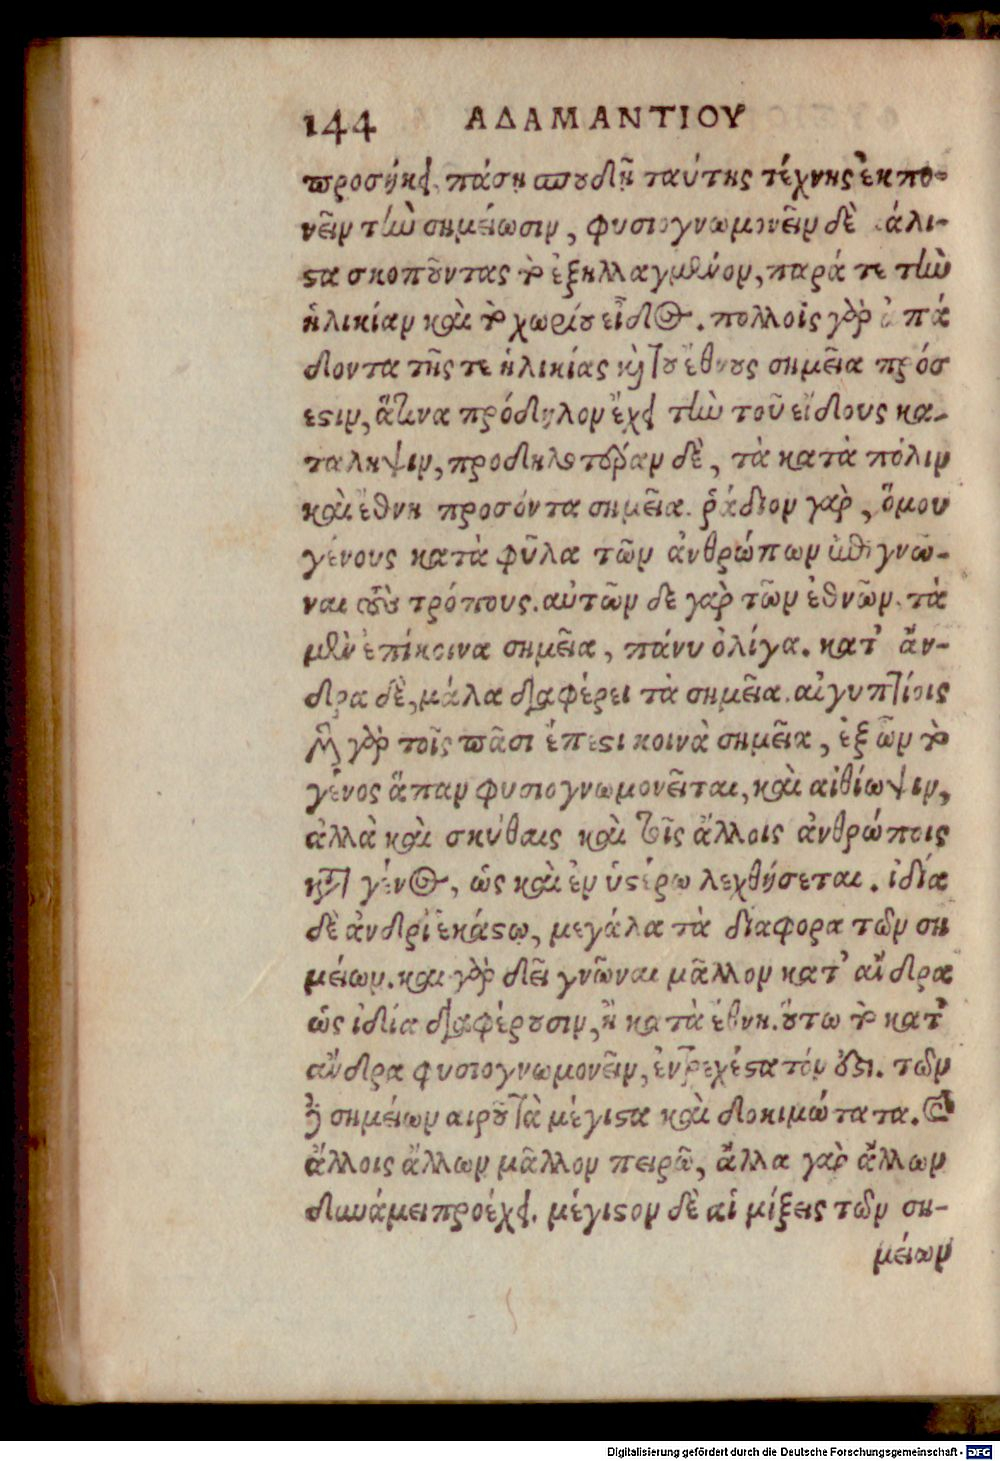 144 ΑΔΑΜΑΝΤΙΟΥ
προσήκει πάσῃ σπουδῇ ταύτης τέχνης ἐκπο-
νεῖν τὴν σημείωσιν, φυσιογνωμονεῖν δὲ μάλι-
στα σκοποῦντας τὸ ἐξηλλαγμένον, παρά τε τὴν
ἡλικίαν καὶ τὸ χωρίου εἶδος. πολλοῖς γὰρ ἀπά
δοντα τῆς τε ἡλικίας καὶ τοῦ ἔθνους σημεῖα πρόσ
εστιν, ἅτινα πρόδηλον ἔχει τὴν τοῦ εἴδους κα-
τάληψιν, προδηλοτέραν δὲ, τὰ κατὰ πόλιν
καὶ ἔθνη προσόντα σημεῖα. ῥάδιον γὰρ, ὅμου
γένους κατὰ φῦλα τῶν ἀνθρώπων ἐπιγνῶ-
ναι τοὺς τρόπους. αὐτῶν δε γὰρ τῶν ἐθνῶν τὰ
μὲν ἐπίκοινα σημεῖα, πάνυ ὀλίγα. κατ' ἄν-
δρα δὲ, μάλα διαφέρει τὰ σημεῖα. αἰγυπτίοις
μὲν γὰρ τοῖς πᾶσι ἔπεστι κοινὰ σημεῖα, ἐξ ὧν τὸ
γένος ἅπαν φυσιογνωμονεῖται, καὶ αἰθίωψιν,
ἀλλὰ καὶ σκύθαις καὶ τοῖς ἄλλοις ἀνθρώποις
κατὰ γένος, ὡς καὶ ἐν ὑστέρω λεχθήσεται. ἰδία
δὲ ἀνδρὶ ἑκάστω, μεγάλα τὰ διαφορα τῶν ση
μείων. και γὰρ δεῖ γνῶναι μᾶλλον κατ' ἄνδρα
ὡς ἰδία διαφέρουσιν, ἢ κατὰ ἔθνη. οὕτω τὸ κατ'
ἄνδρα φυσιογνωμονεῖν, ἐντρεχέστατόν ἐστι. τῶν
δὲ σημείων αιροῦ τὰ μέγιστα καὶ δοκιμώτατα.
ἄλλοις ἄλλων μᾶλλον πειρῶ, ἄλλα γὰρ ἄλλων
δυνάμει προέχει. μέγιστον δὲ αἱ μίξεις τῶν ση-
μείων
Digitalisierung gefördert durch die Deutsche Forschungsgemeinschaft - DFG